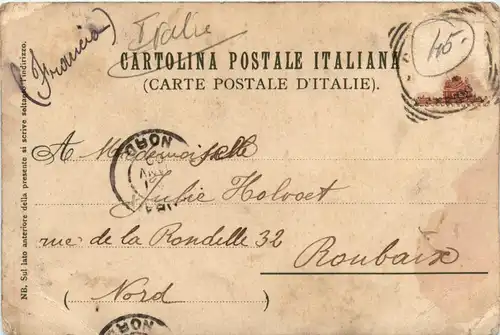 (Francia)
Italie
45.
CARTOLINA POSTALE ITALIANA
(CARTE POSTALE D'ITALIE).
NB. Sul lato anteriore della presente si scrive soltanto l'indirizzo.
A Mademoiselle
Julie Holvoet
rue de la Rondelle 32
Roubaix
(Nord)
NORD